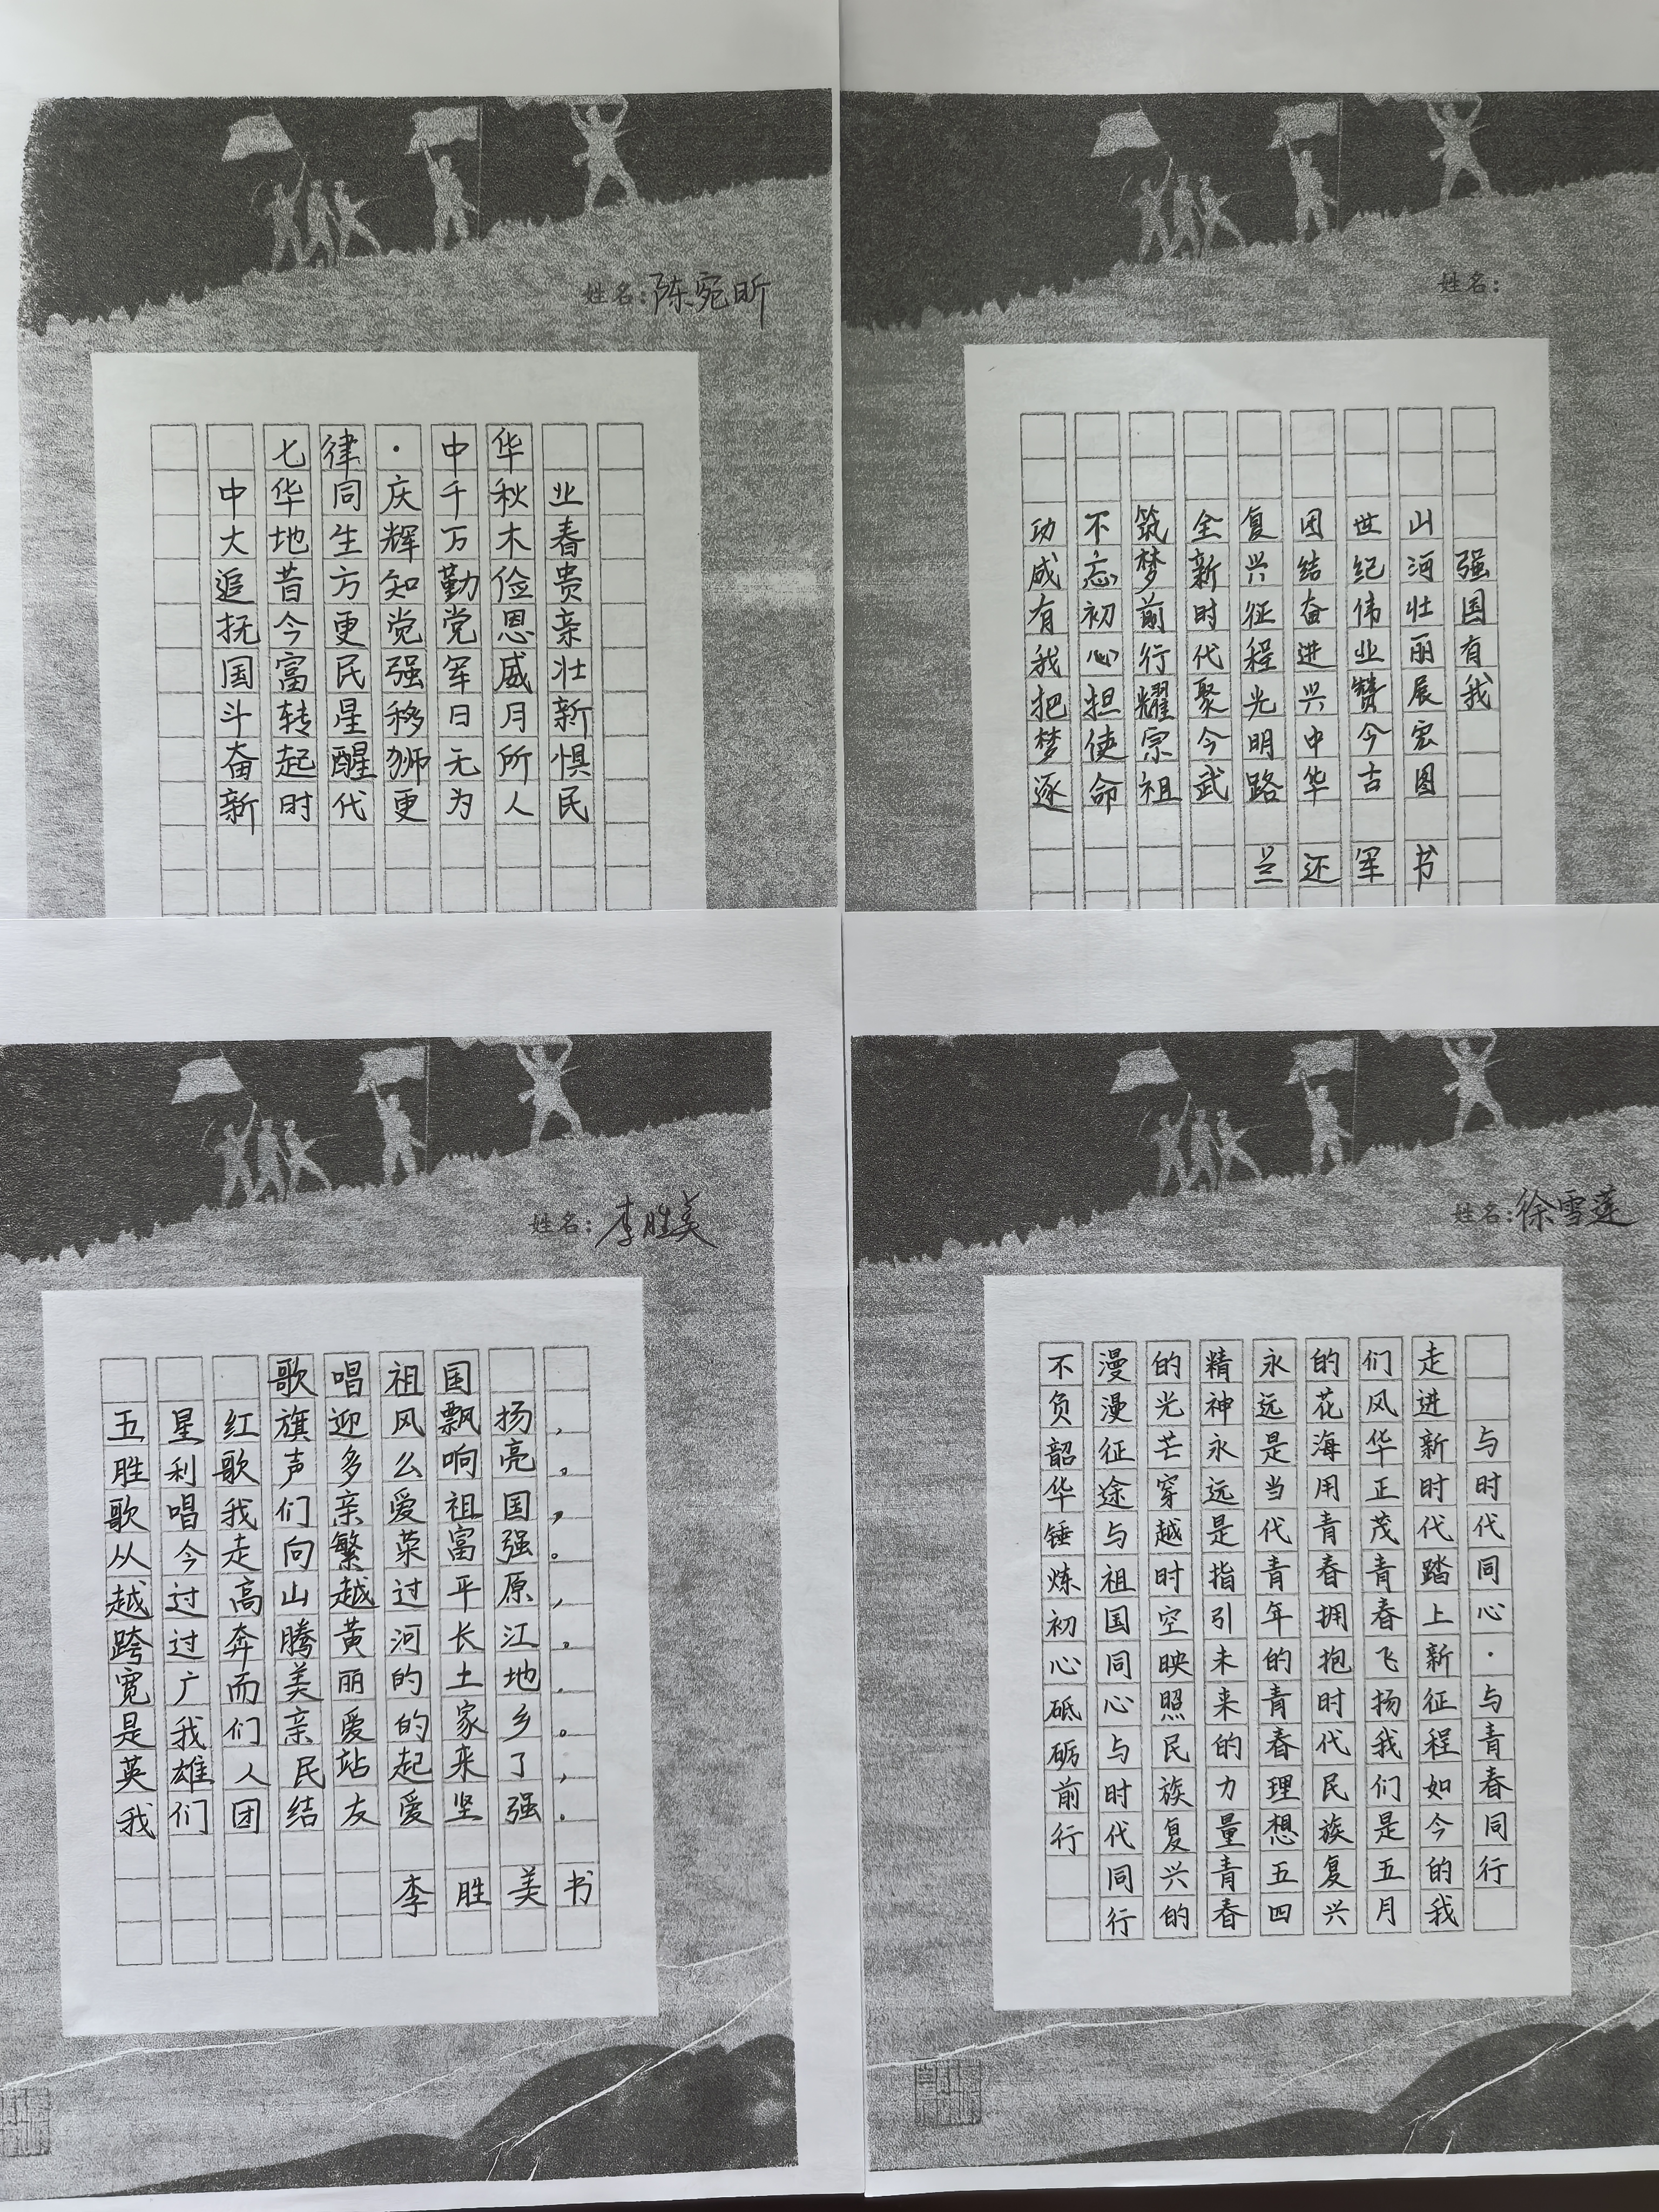 姓名：陈宛昕
七律·中华
中华同庆千秋业
大地生辉万木春
追昔方知勤俭贵
抚今更觉党恩亲
国富民强军威壮
斗转星移日月新
奋起醒狮无所惧
新时代更为人民
姓名：
强国有我
山河壮丽展宏图
世纪伟业赞今古
团结奋进兴中华
复兴征程光明路
全新时代聚今武
筑梦前行耀宗祖
不忘初心担使命
功成有我把梦逐
兰还军书
姓名：李胜美
歌唱祖国
五星红旗迎风飘扬，
胜利歌声多么响亮。
歌唱我们亲爱祖国，
从今走向繁荣富强。
越过高山越过平原，
跨过奔腾黄河长江。
宽广而美丽的土地，
是我们亲爱的家乡。
英雄人民站起来了，
我们团结友爱坚强。
李胜美书
姓名：徐雪莲
与时代同心·与青春同行
走进新时代踏上新征程如今的我
们风华正茂青春飞扬我们是五月
的花海用青春拥抱时代民族复兴
永远是当代青年的青春理想五四
精神永远是指引未来的力量青春
的光芒穿越时空映照民族复兴的
漫漫征途与祖国同心与时代同行
不负韶华锤炼初心砥砺前行